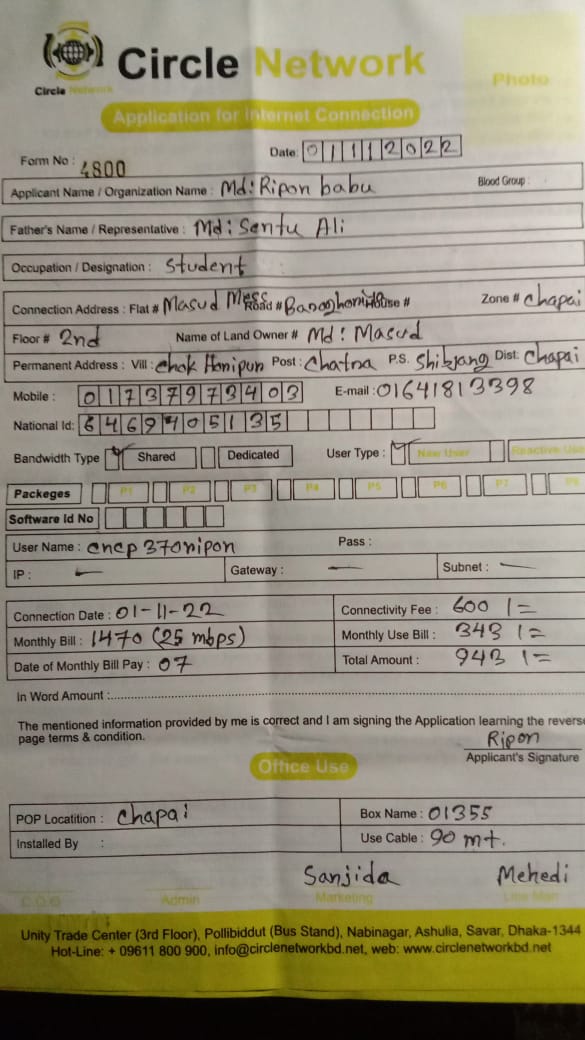 Circle Network
Circle Network
Photo
Application for Internet Connection
Form No : 4800
Date: 01112022
Applicant Name / Organization Name : Md: Ripon babu Blood Group :
Father's Name / Representative : Md: Sentu Ali
Occupation / Designation : Student
Connection Address : Flat # Masud Mess Road # House # Zone # Chapai
Floor # 2nd Name of Land Owner # Md: Masud
Permanent Address : Vill : Chak Haripur Post : Chatra P.S. Shibjang Dist: Chapai
Mobile : 01737973403 E-mail : 01641813398
National Id: 6469405135
Bandwidth Type Shared Dedicated User Type : New User Reactive Use
Packeges P1 P2 P3 P4 P5 P6 P7 P8
Software Id No
User Name : cncp370ripon Pass :
IP : — Gateway : — Subnet : —
Connection Date : 01-11-22 Connectivity Fee : 600 /=
Monthly Bill : 1470 (25 mbps) Monthly Use Bill : 343 /=
Date of Monthly Bill Pay : 07 Total Amount : 943 /=
In Word Amount :
The mentioned information provided by me is correct and I am signing the Application learning the reverse
page terms & condition.
Ripon
Applicant's Signature
Office Use
POP Locatition : Chapai Box Name : 01355
Installed By : Use Cable : 90 mt.
Sanjida Mehedi
C.O.O Admin Marketing Line Man
Unity Trade Center (3rd Floor), Pollibiddut (Bus Stand), Nabinagar, Ashulia, Savar, Dhaka-1344
Hot-Line: + 09611 800 900, info@circlenetworkbd.net, web: www.circlenetworkbd.net